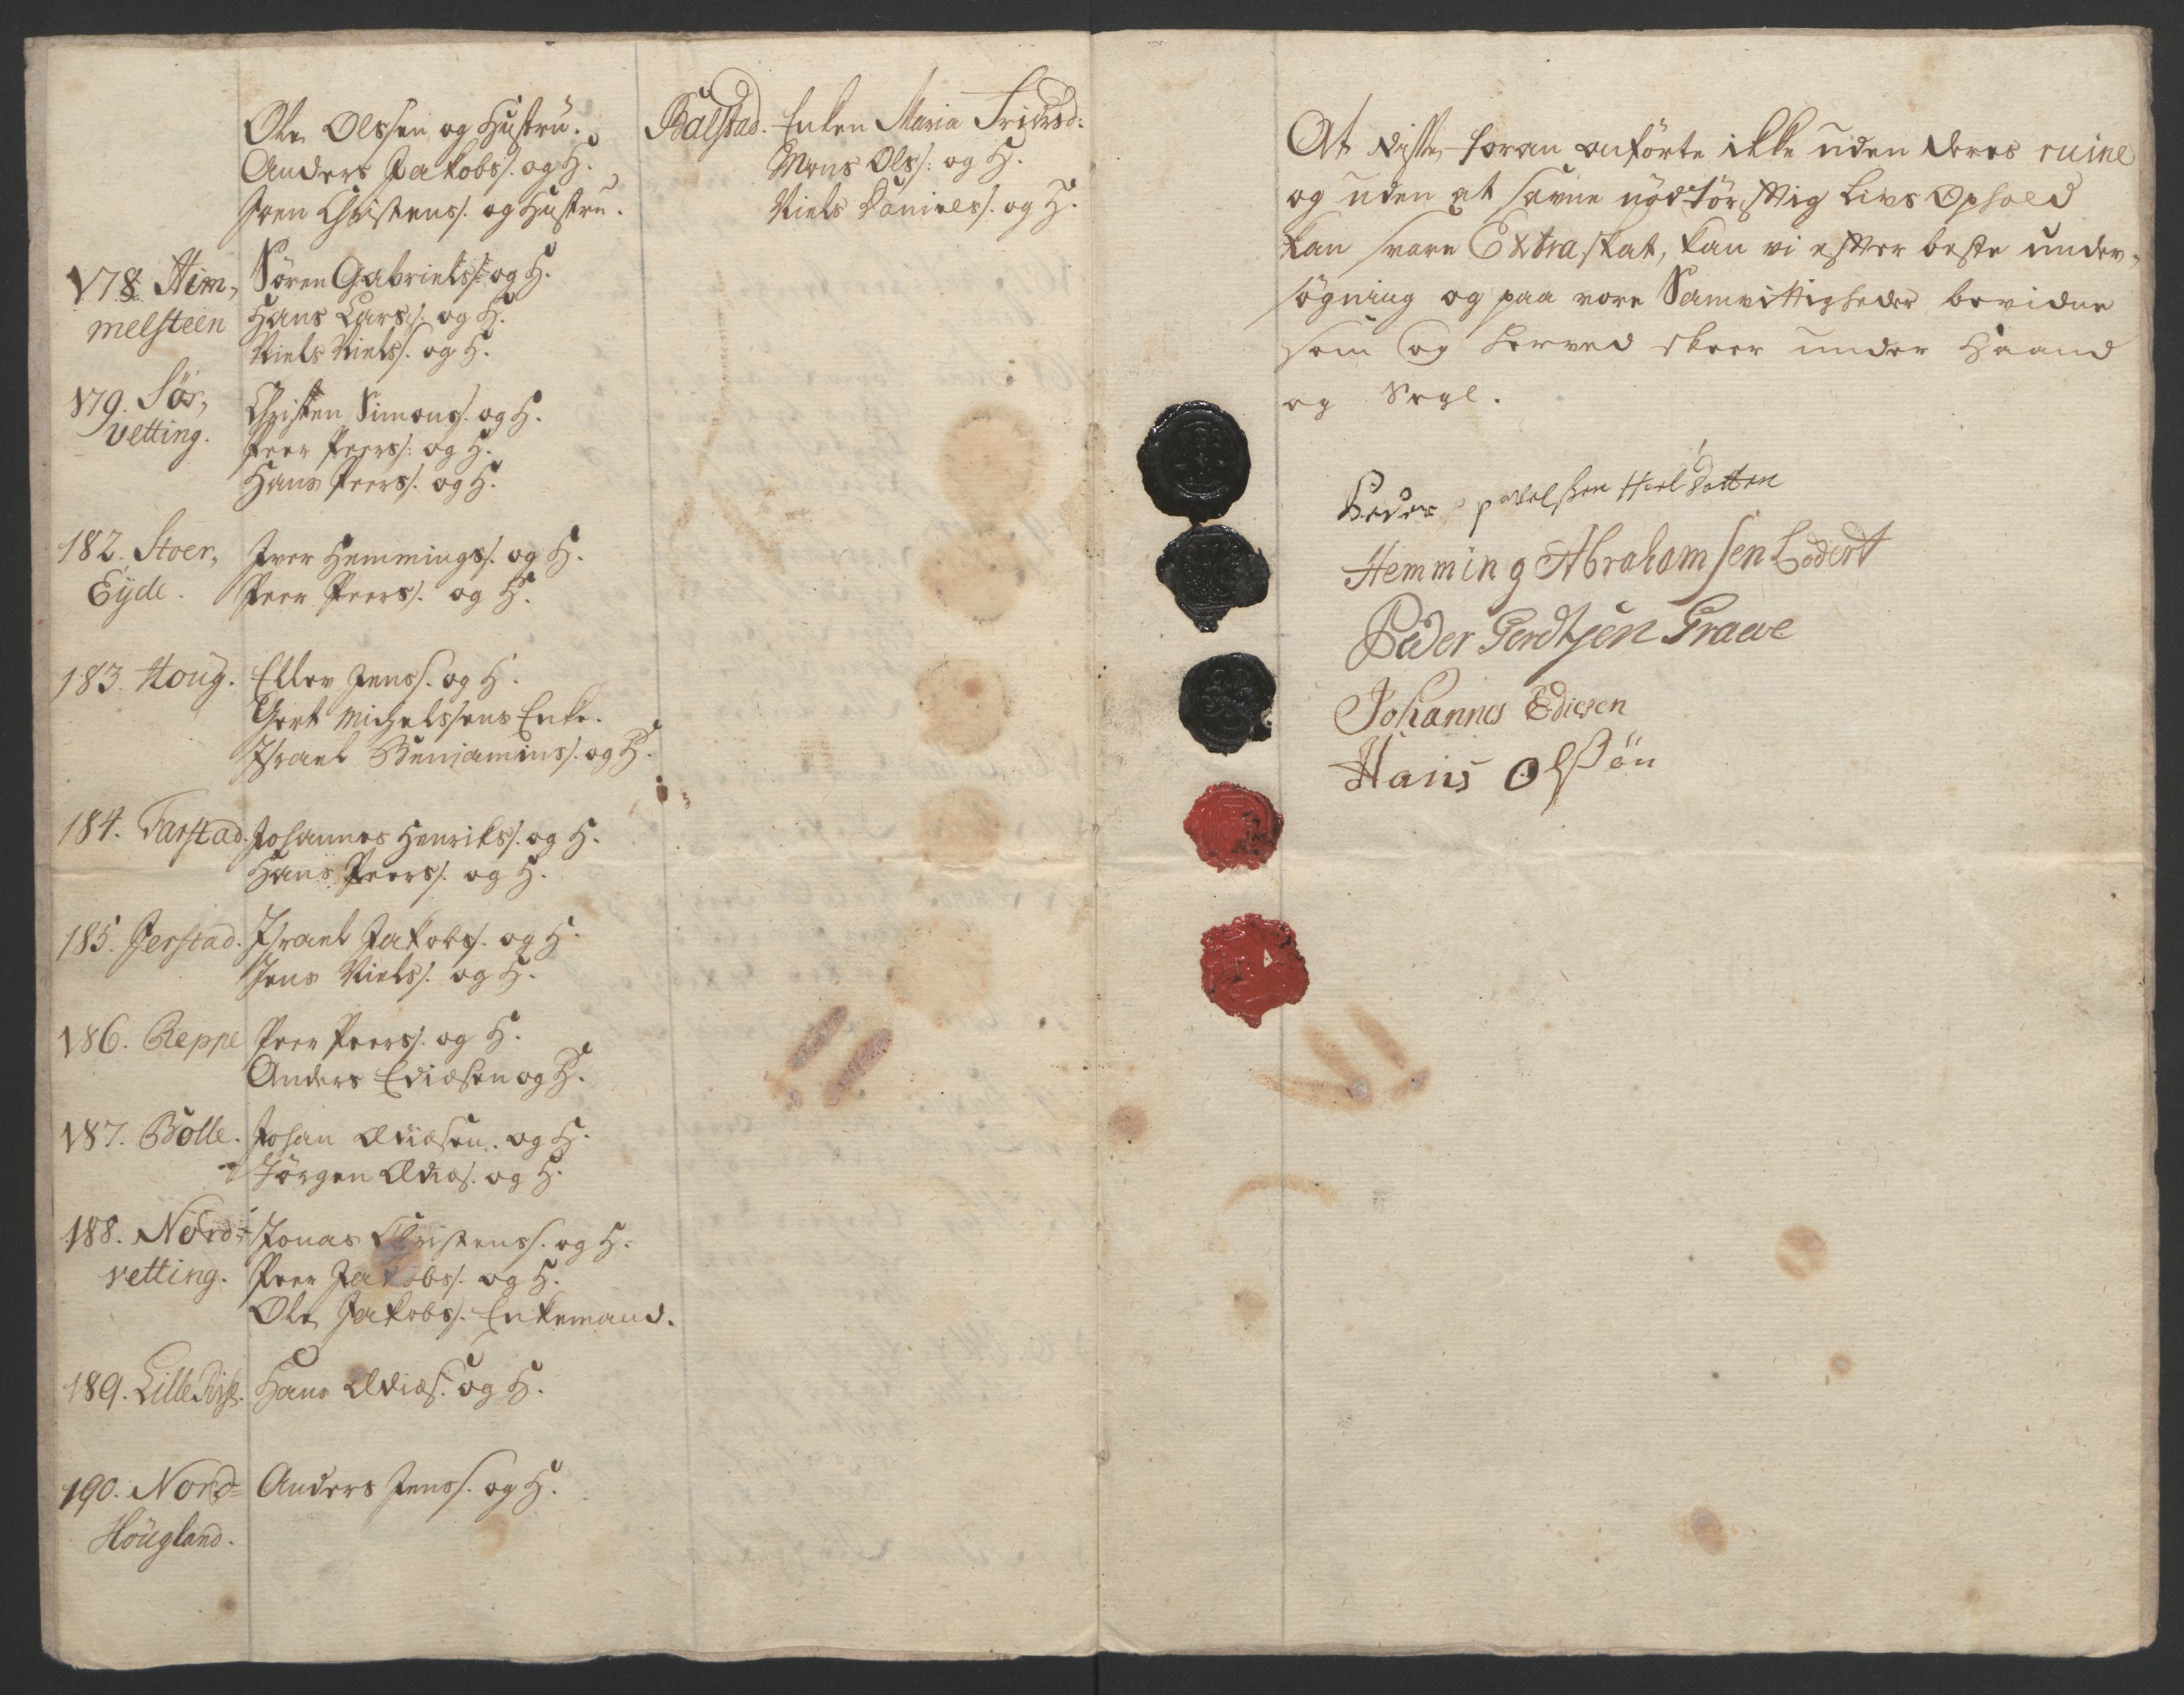 Ole Olssen og Hustru.
Anders Jakobs/. og H.
Iver Christens/. og Hustru.
178 Him,
melsteen
Sören Gabriels/: og H.
Hans Lars/. og H.
Niels Niels/. og H.
179. Sör,
vetting.
Christen Simons/. og H.
Peer Peers/: og H.
Hans Peers/. og H.
182. Stoer,
Eyde.
Iver Hemmings/. og H.
Peer Peers/. og H.
183. Houg.
Ellev Jens/. og H.
Gert Michelssens Enke.
Israel Benjamins/. og H.
184. Farstad.
Johannes Henriks/. og H.
Hans Peers/. og H.
185. Jerstad.
Israel Jakobs/. og H.
Jens Niels/. og H.
186. Reppe
Peer Peers/. og H.
Anders Ediæsen og H.
187. Bolle.
Johan Ædiæsen. og H.
Jörgen Ædiæs/. og H.
188. Nord-
vetting.
Jonas Christens/. og H.
Peer Jakobs/. og H.
Ole Jakobs/. Enkemand.
189. Lille
Hans Ædiæs/. og H.
190. Nord=
Höugland.
Anders Jens/. og H.
Balstad. Enken Maria Fridrsd:
Mons Ols/: og H.
Niels Daniels/. og H.
At diste foran anförte ikke uden deres ruine
og uden at savne nödtörfftig Livs Ophold
kan svare Extraskat, kan vi efter beste under,
sögning og paa vore Samvittigheder bevidne
som og herved skeer under Haand
og Segl.
Peder povelsen
Hemming Abrahamsen
Peder Gerdtsen Graeve
Johannes Ediesen
Hans Olsön